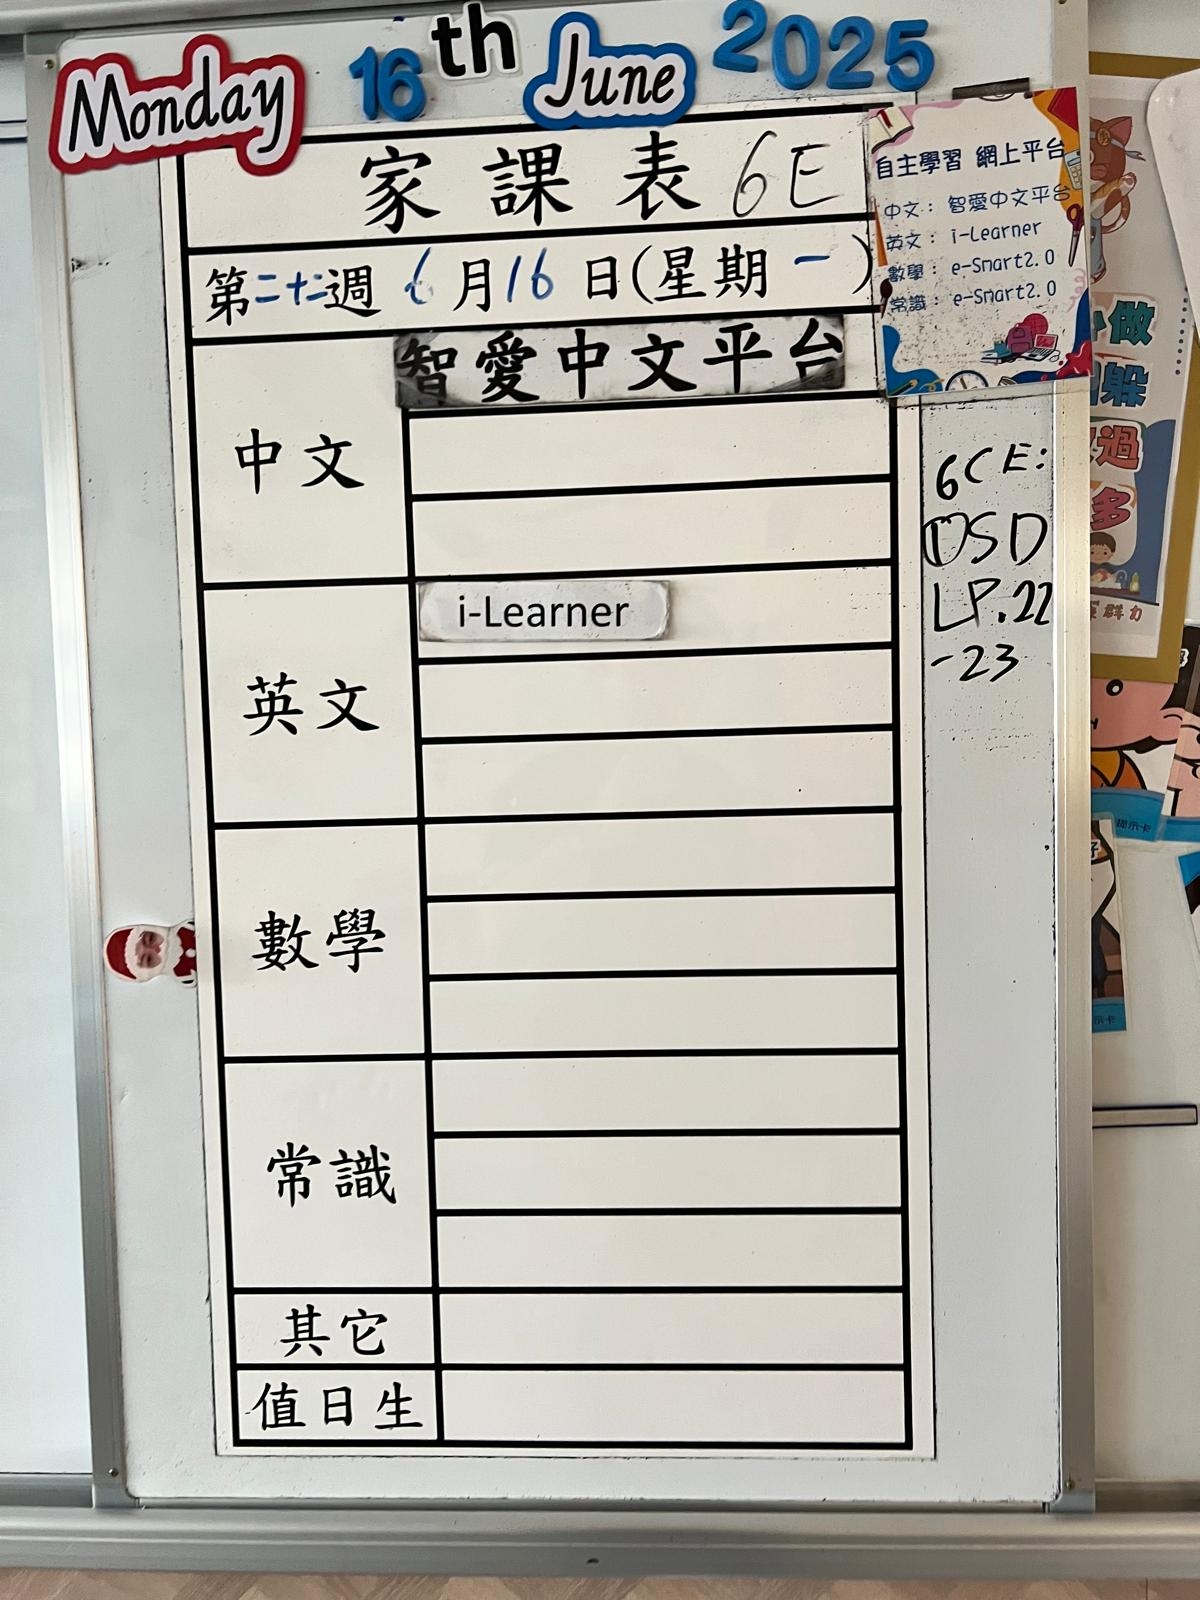 Monday 16th June 2025
家課表 6E
第二十二週 6月16日(星期一)
自主學習 網上平台
中文：智愛中文平台
英文：i-Learner
數學：e-Smart2.0
常識：e-Smart2.0
智愛中文平台
中文
i-Learner
英文
數學
常識
其它
值日生
6CE:
①SD
LP.22
-23
做
躲
過
多
群力
提示卡
示卡
好